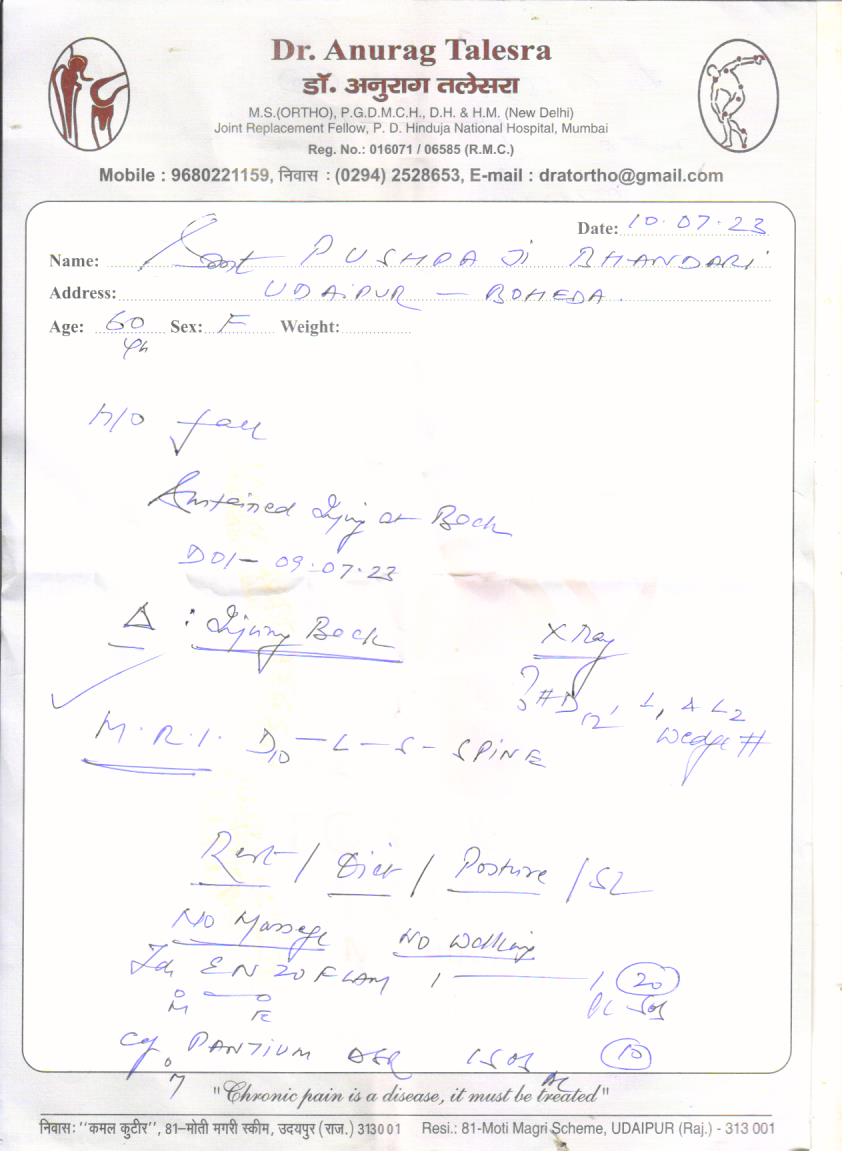 Dr. Anurag Talesra
डॉ. अनुराग तलेसरा
M.S.(ORTHO), P.G.D.M.C.H., D.H. & H.M. (New Delhi)
Joint Replacement Fellow, P. D. Hinduja National Hospital, Mumbai
Reg. No.: 016071 / 06585 (R.M.C.)
Mobile : 9680221159, निवास : (0294) 2528653, E-mail : dratortho@gmail.com
Date: 10.07.23
Name: PUSHPA Ji BHANDARi
Address: UDAiPUR - BOHEDA.
Age: 60 Sex: F Weight:
H/O fall
Sustained Injury at Back
DOI- 09.07.23
Δ : Injury Back X Ray
?# D12, L1 & L2
Wedge #
M.R.I. D10 - L - S - SPINE
Rest / Diet / Posture / SL
NO Massage NO Walking
EN ZO FLAM 1 — 1 20
M E SOS
PANTIUM DSR 1 SOS 10
"Chronic pain is a disease, it must be treated"
निवास: "कमल कुटीर", 81-मोती मगरी स्कीम, उदयपुर (राज.) 313001 Resi.: 81-Moti Magri Scheme, UDAIPUR (Raj.) - 313 001